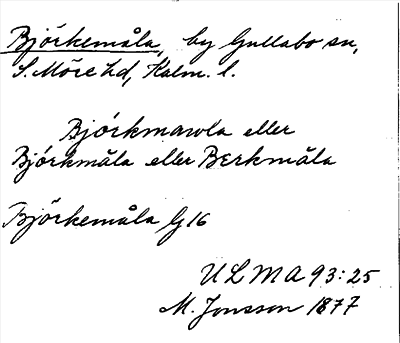 Björkemåla, by Gullabo sn,
S. Möre hd, Kalm. l.
Björkmawla eller
Björkmåla eller Berkmåla
Björkemåla G 16
ULMA 93:25
M. Jonsson 1877